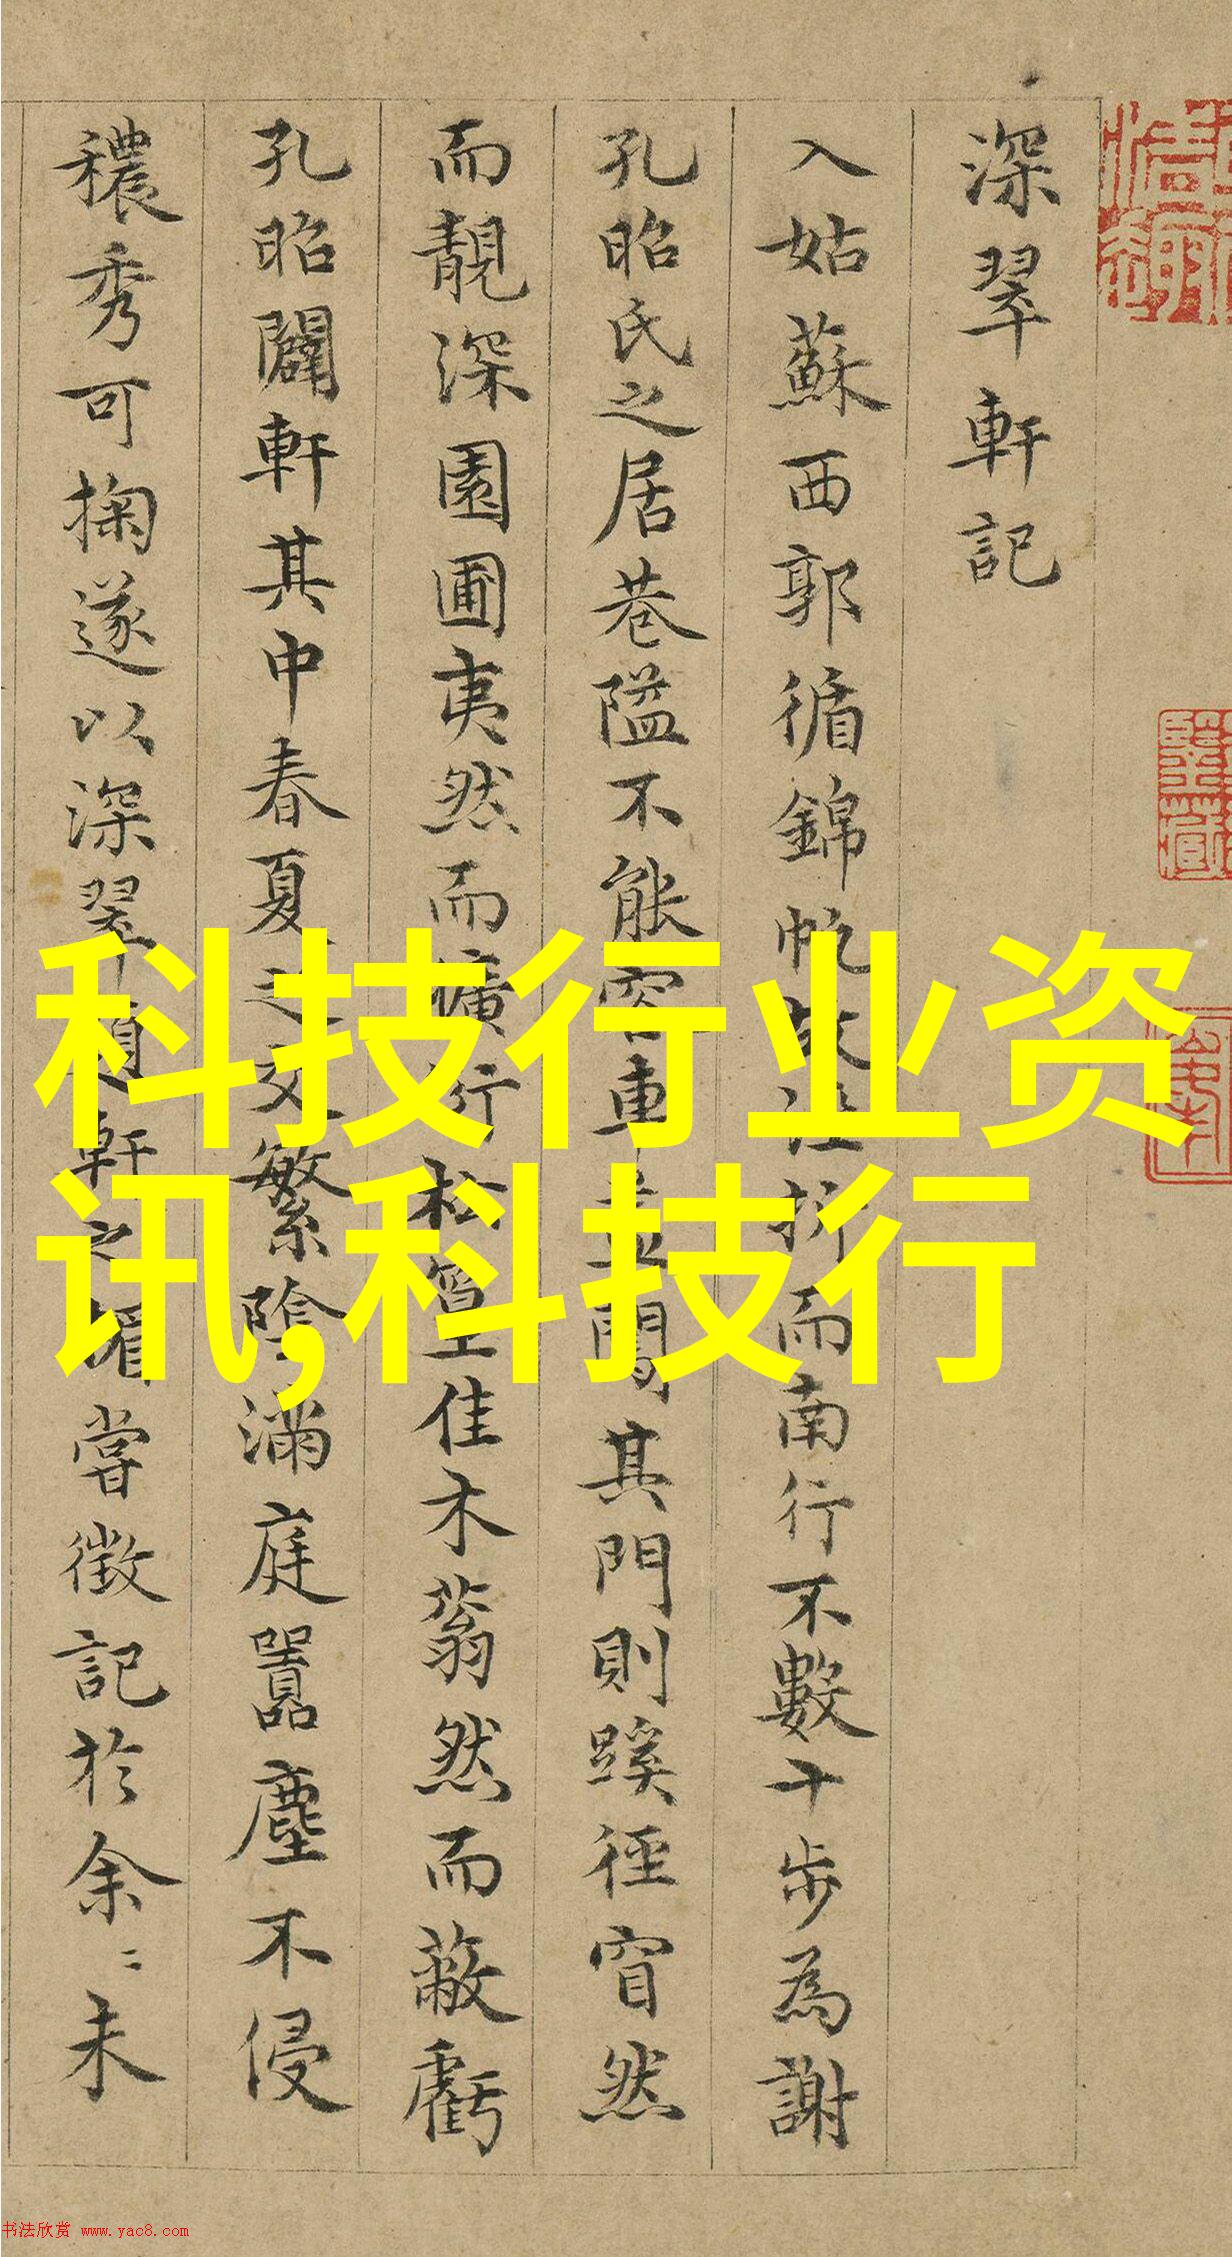 深翠軒記
入姑蘇西郭循錦帆故涇折而南行不數十步為謝
孔昭氏之居巷隘不能容車蓋闖其門則蹊徑窅然
而靚深園圃夷然而曠衍松篁佳木蓊然而蔽虧
孔昭闢軒其中春夏之交繁陰滿庭囂塵不侵
穠秀可掬遂以深翠顏軒之楣嘗徵記於余〻未
科技行业资
讯,科技行
书法欣赏 www.yac8.com